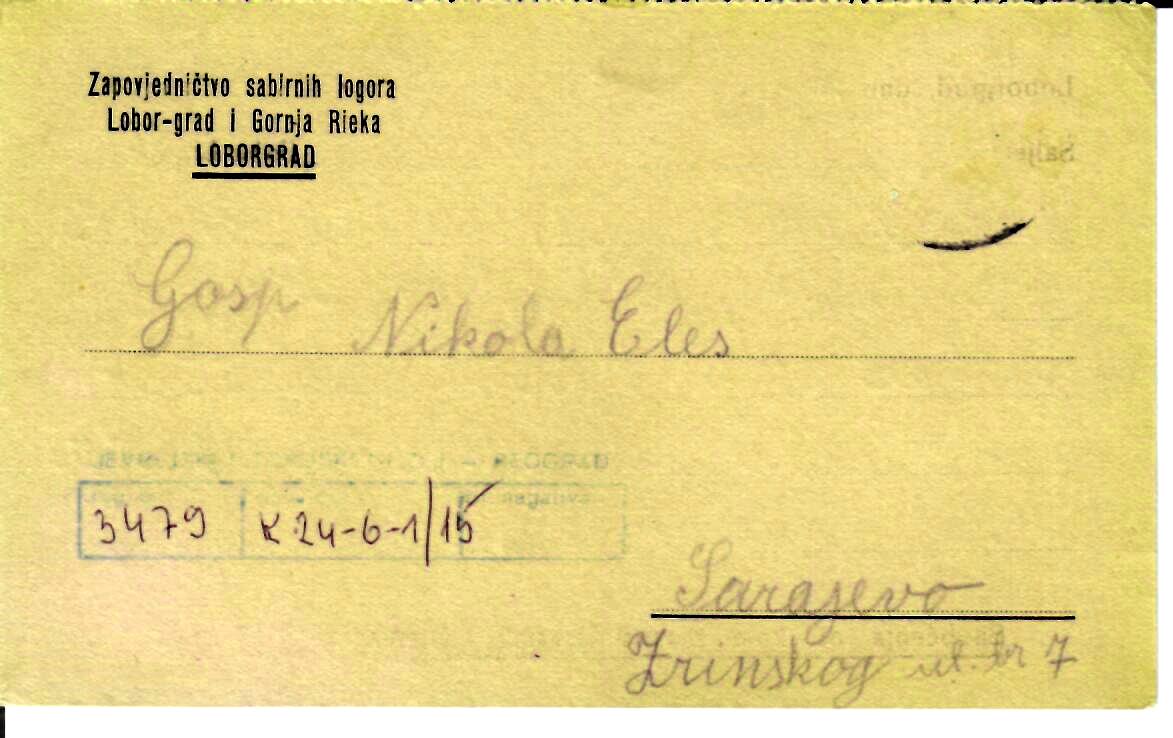 Zapovjedničtvo sabirnih logora
Lobor-grad i Gornja Rieka
LOBORGRAD
Gosp Nikola Eles
3479 K 24-6-1/15
Sarajevo
Zrinskog ul. br 7